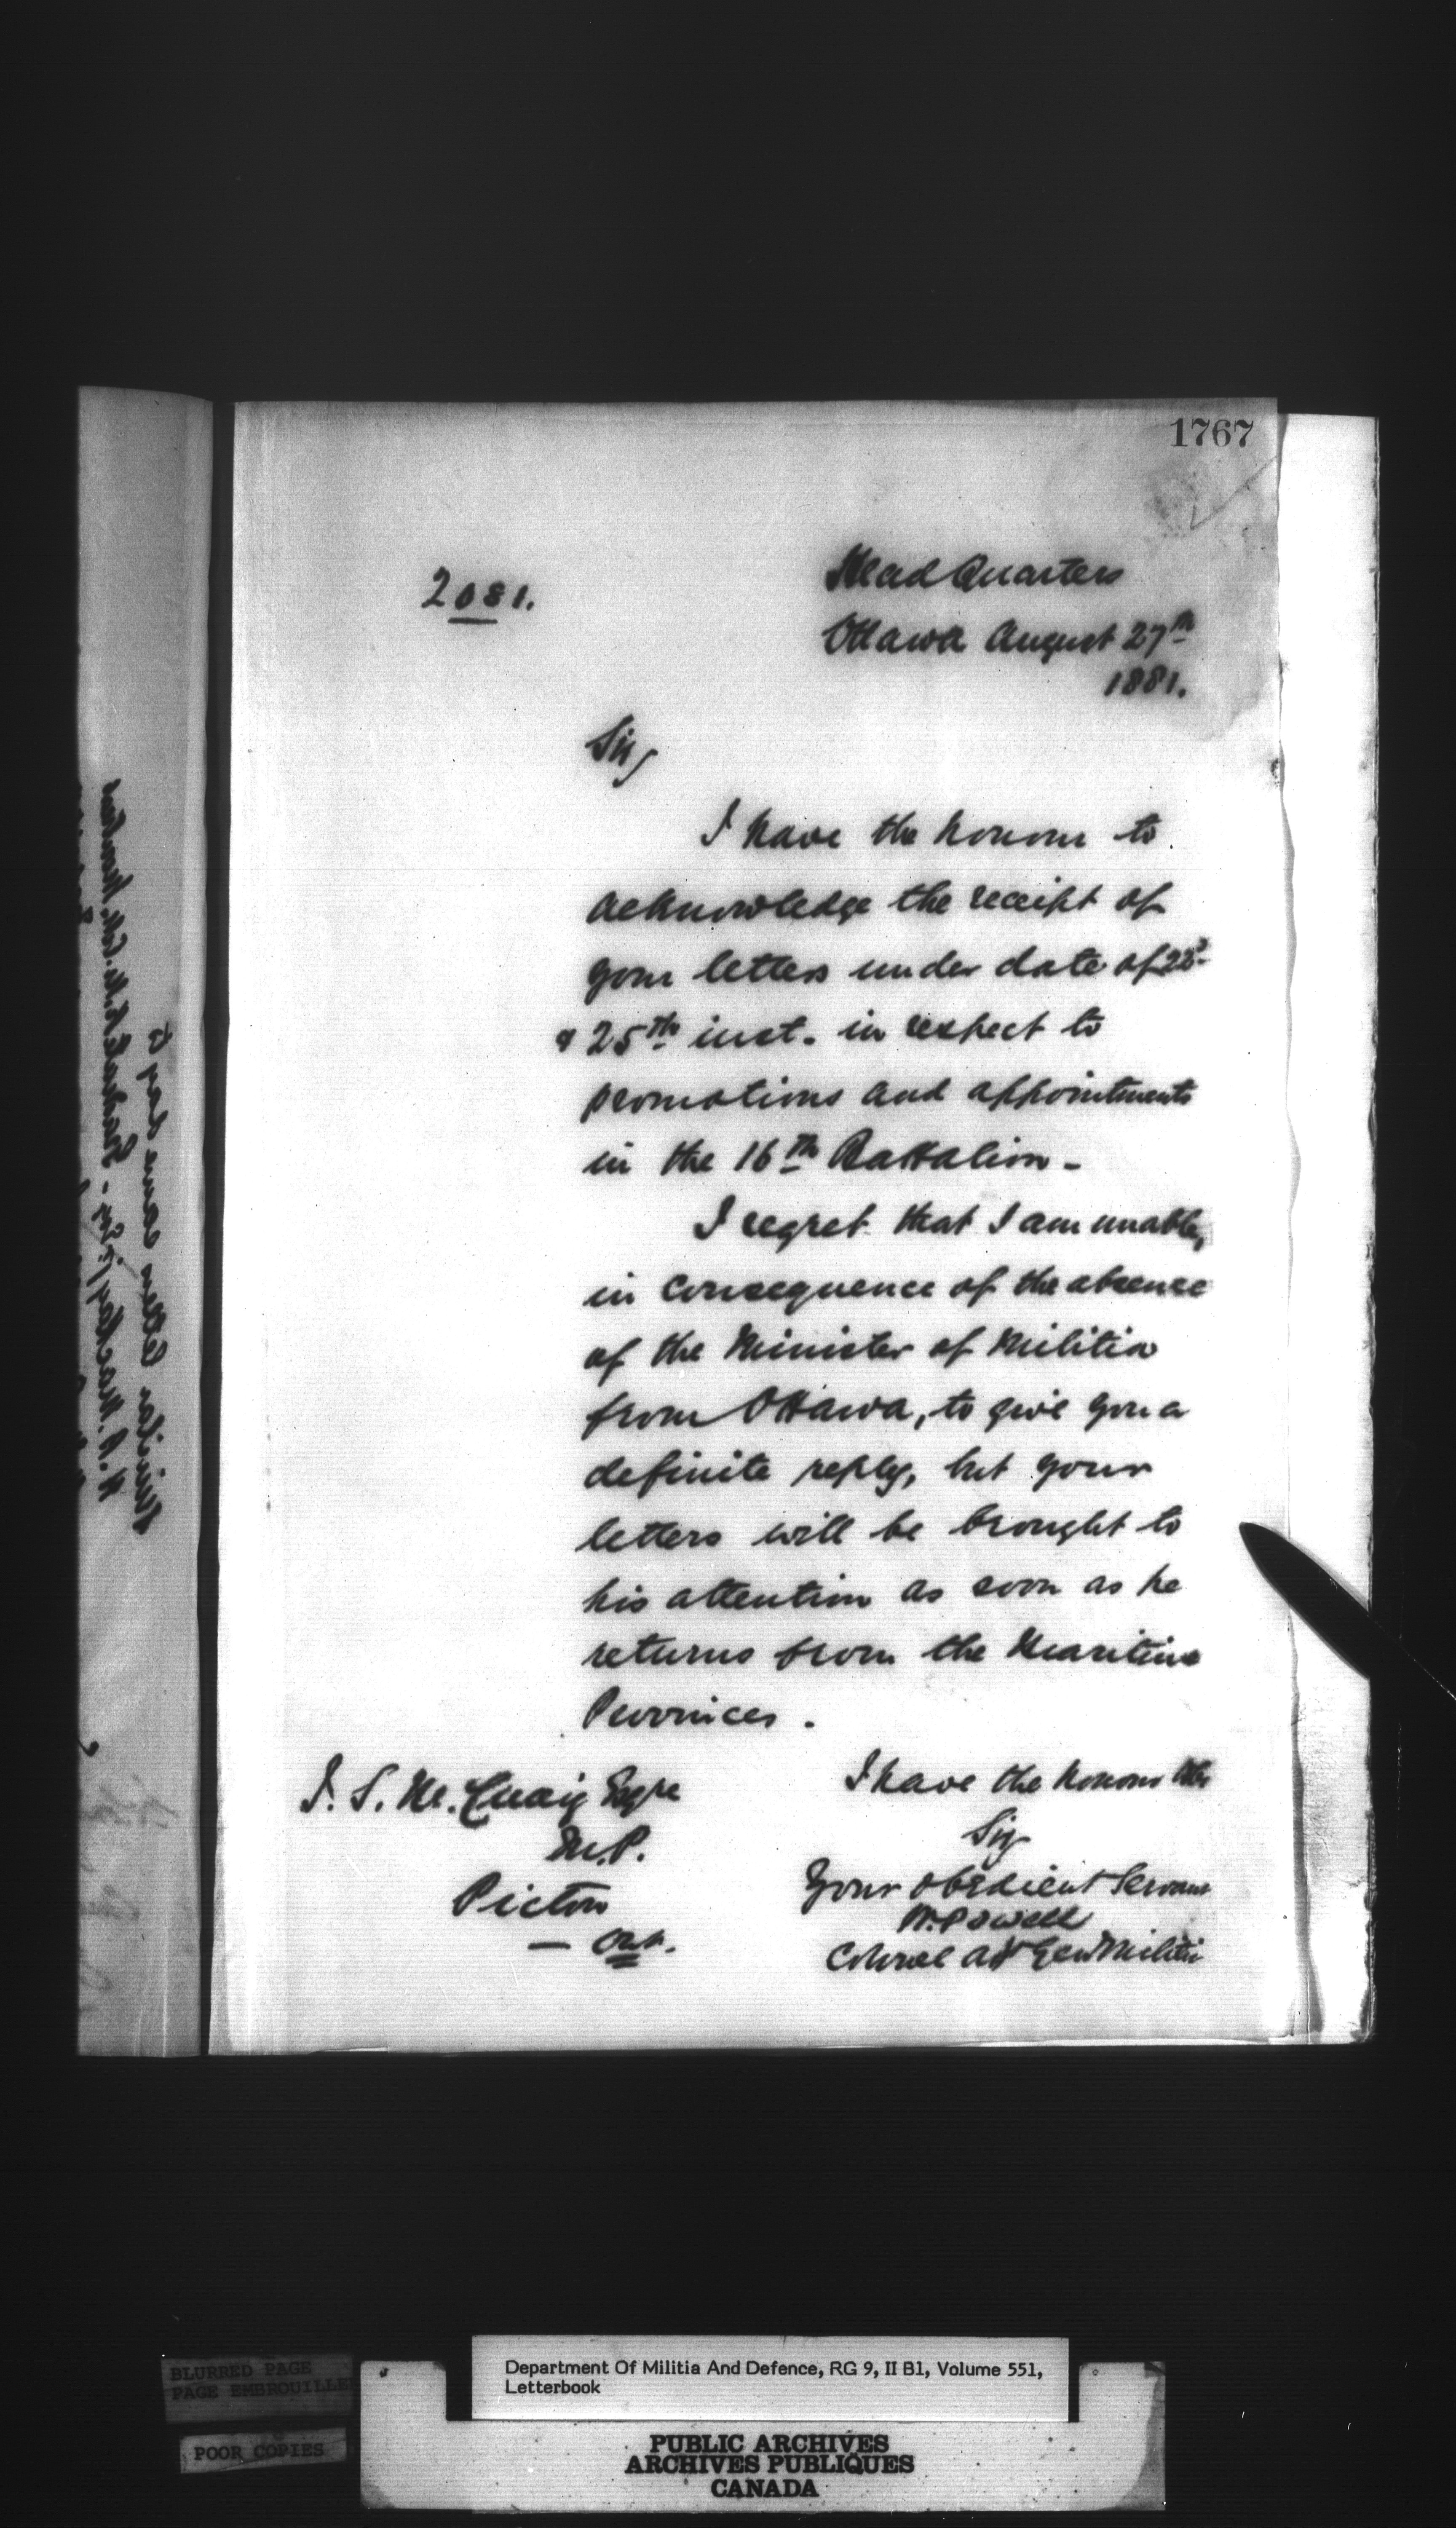 1767
2081.
Head Quarters
Ottawa August 27th
1881.
Sir,
I have the honour to
acknowledge the receipt of
your letters under date of
& 25th inst. in respect to
promotions and appointments
in the 16th Battalion -
I regret that I am unable,
in consequence of the absence
of the Minister of Militia
from Ottawa, to give you a
definite reply, but your
letters will be brought to
his attention as soon as he
returns from the Maritime
Provinces.
I have the honour
Sir
Your obedient Servant
W. Powell
Colonel Adj Gen Militia
J. S. Mc. Cuaig Esqre
M.P.
Picton
— Ont.
Similar letter same day to
BLURRED PAGE
PAGE EMBROUILLE
POOR COPIES
Department Of Militia And Defence, RG 9, II B1, Volume 551,
Letterbook
PUBLIC ARCHIVES
ARCHIVES PUBLIQUES
CANADA